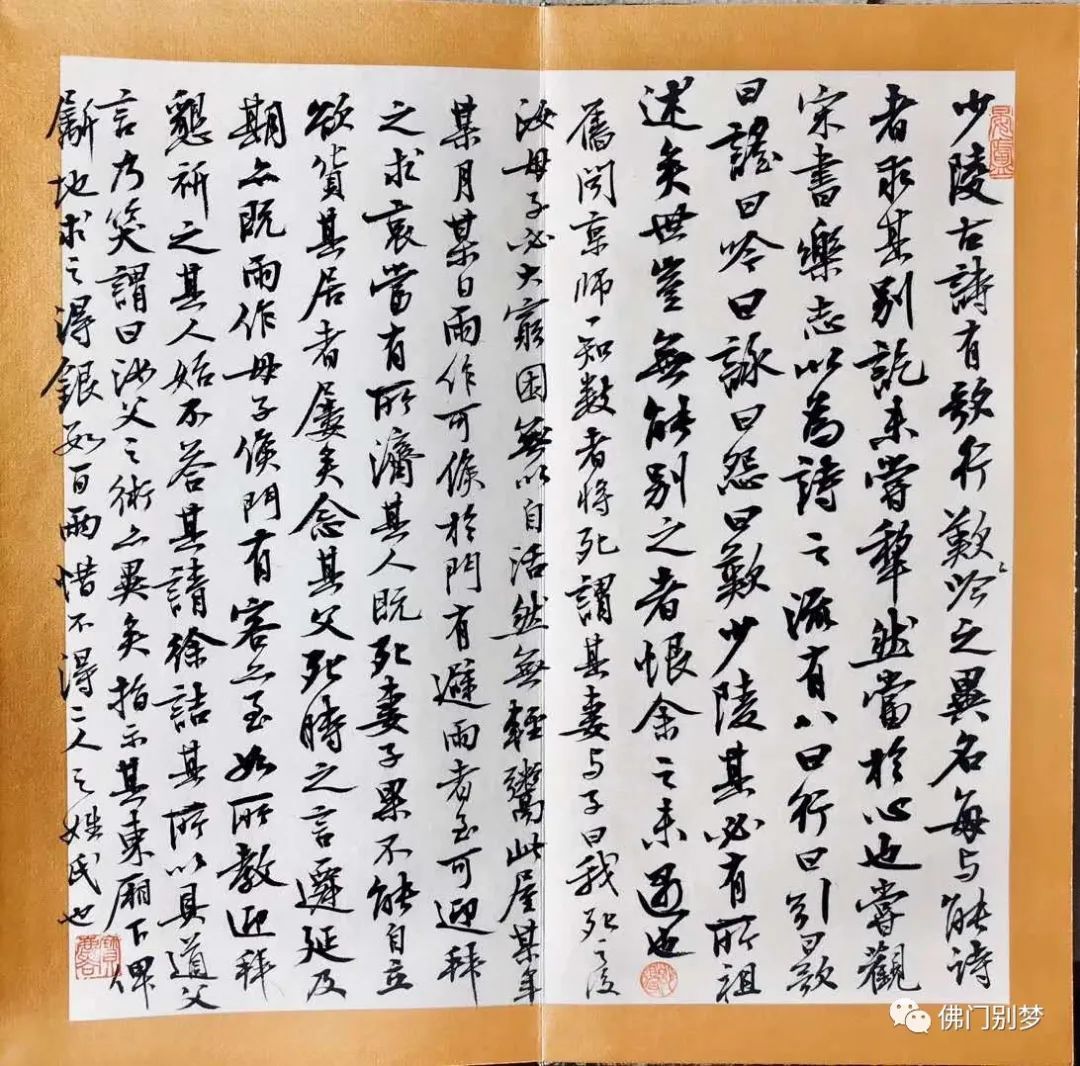 少陵古詩有歌行歎吟之異名每与能詩
者求其别訖未嘗犂然當於心也嘗觀
宋書樂志以為詩之流有八曰行曰引曰歌
曰謡曰吟曰詠曰怨曰歎少陵其必有所祖
述矣世豈無能别之者恨余之未遇也
舊聞京師一知数者将死謂其妻与子曰我死之後
汝母子必大窮困無以自活然無輕鬻此屋某年
某月某日雨作可候於門有避雨者至可迎拜
之求哀當有所濟其人既死妻子果不能自立
欲貨其居者屢矣念其父死時之言遷延及
期亦既雨作母子候門有客亦至如所教迎拜
懇祈之其人始不答其請徐詰其所以具道父
言乃笑謂曰汝父之術亦異矣指示其東廂下俾
斸地求之得銀数百兩惜不得二人之姓氏也
佛门别梦